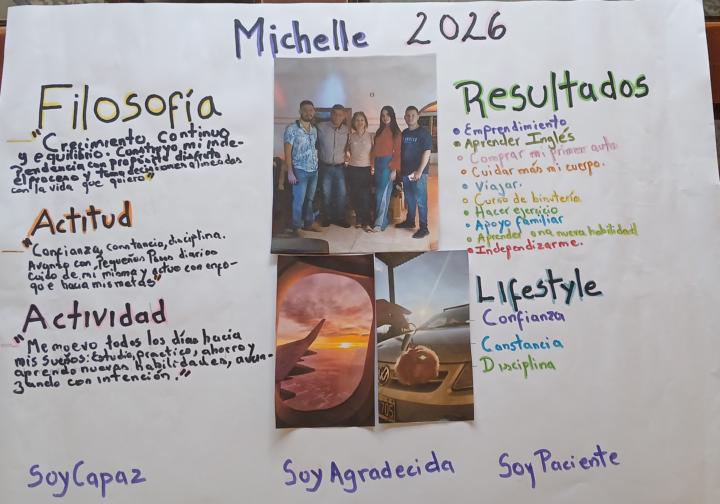 Michelle 2026
Filosofía
"Crecimiento continuo
y equilibrio. Construyo mi inde-
pendencia con propósito disfruto
el proceso y tomo decisiones alineadas
con la vida que quiero"
Actitud
"Confianza, constancia, disciplina.
Avanto con pequeños pasos diarios
cuido de mi misma y actuo con enfo-
que hacia mis metas"
Actividad
"Me muevo todos los días hacia
mis sueños: Estudio, practico, ahorro y
aprendo nuevas habilidades, avan-
zando con intención."
Resultados
• Emprendimiento
• Aprender Inglés
• Comprar mi primer auto
• Cuidar más mi cuerpo.
• Viajar.
• Curso de bisutería
• Hacer ejercicio
• Apoyo familiar
• Aprender una nueva habilidad
• Independizarme.
Lifestyle
Confianza
Constancia
Disciplina
Soy Capaz
Soy Agradecida
Soy Paciente